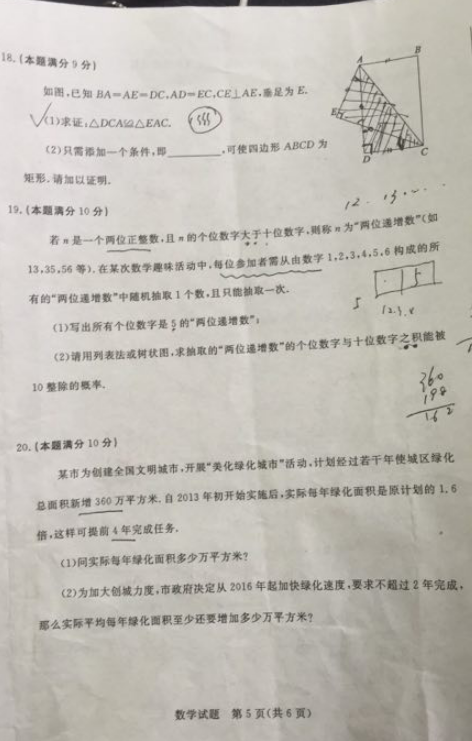 18.(本题满分9分)
如图,已知 BA=AE=DC,AD=EC,CE⊥AE,垂足为 E.
(1)求证:△DCA≌△EAC.
(2)只需添加一个条件,即________,可使四边形 ABCD 为
矩形.请加以证明.
A
B
E
D
C
12. 13. ...
19.(本题满分10分)
若 n 是一个两位正整数,且 n 的个位数字大于十位数字,则称 n 为“两位递增数”(如
13,35,56 等).在某次数学趣味活动中,每位参加者需从由数字 1,2,3,4,5,6 构成的所
有的“两位递增数”中随机抽取 1 个数,且只能抽取一次.
5
(1)写出所有个位数字是 5 的“两位递增数”;
(2)请用列表法或树状图,求抽取的“两位递增数”的个位数字与十位数字之积能被
10 整除的概率.
360
198
162
20.(本题满分10分)
某市为创建全国文明城市,开展“美化绿化城市”活动,计划经过若干年使城区绿化
总面积新增 360 万平方米.自 2013 年初开始实施后,实际每年绿化面积是原计划的 1.6
倍,这样可提前 4 年完成任务.
(1)问实际每年绿化面积多少万平方米?
(2)为加大创城力度,市政府决定从 2016 年起加快绿化速度,要求不超过 2 年完成,
那么实际平均每年绿化面积至少还要增加多少万平方米?
数学试题 第5页(共6页)